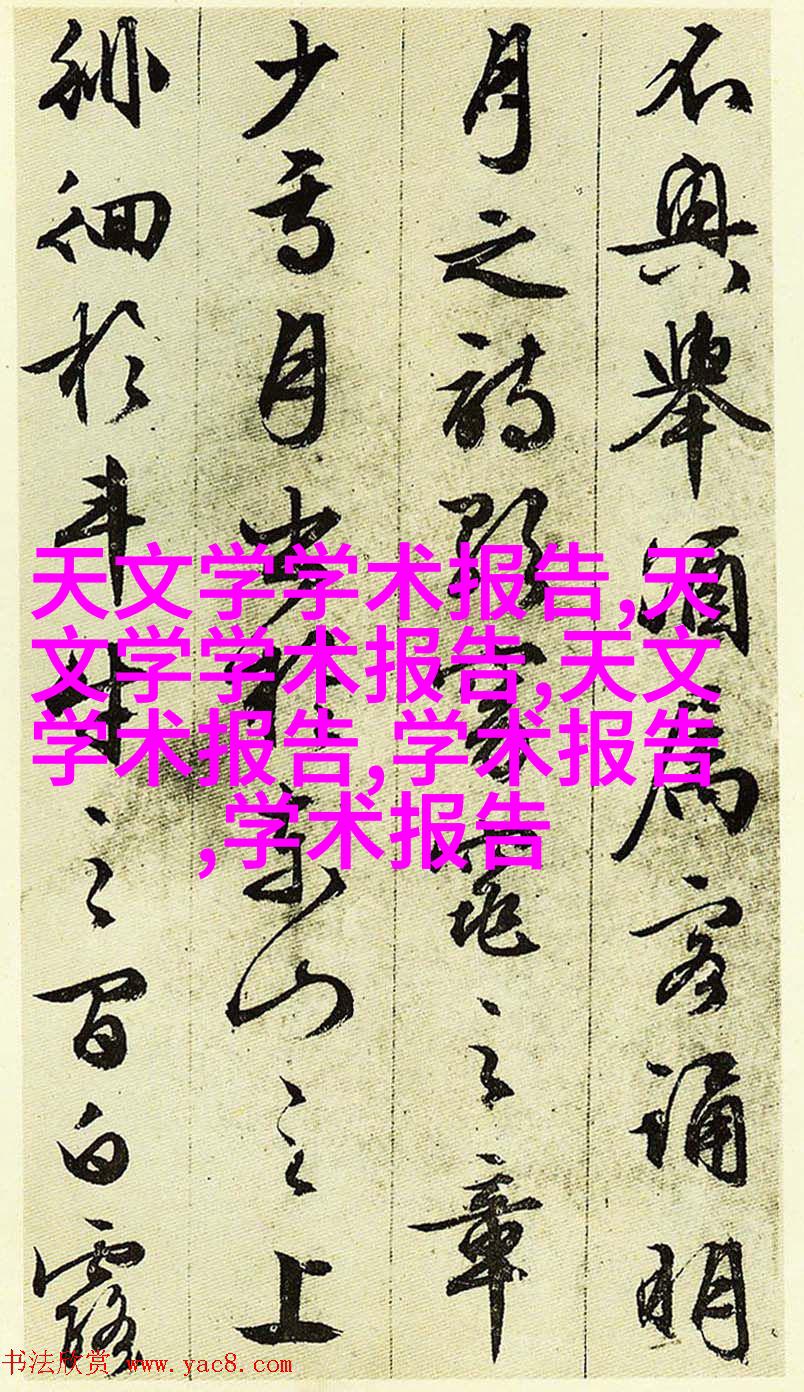 不興舉酒属客誦明
月之詩歌窈窕之章
少焉月出於東山之上
徘徊於斗牛之間白露
天文学学术报告,天
文学学术报告,天文
学术报告,学术报告
,学术报告
书法欣赏 www.yac8.com